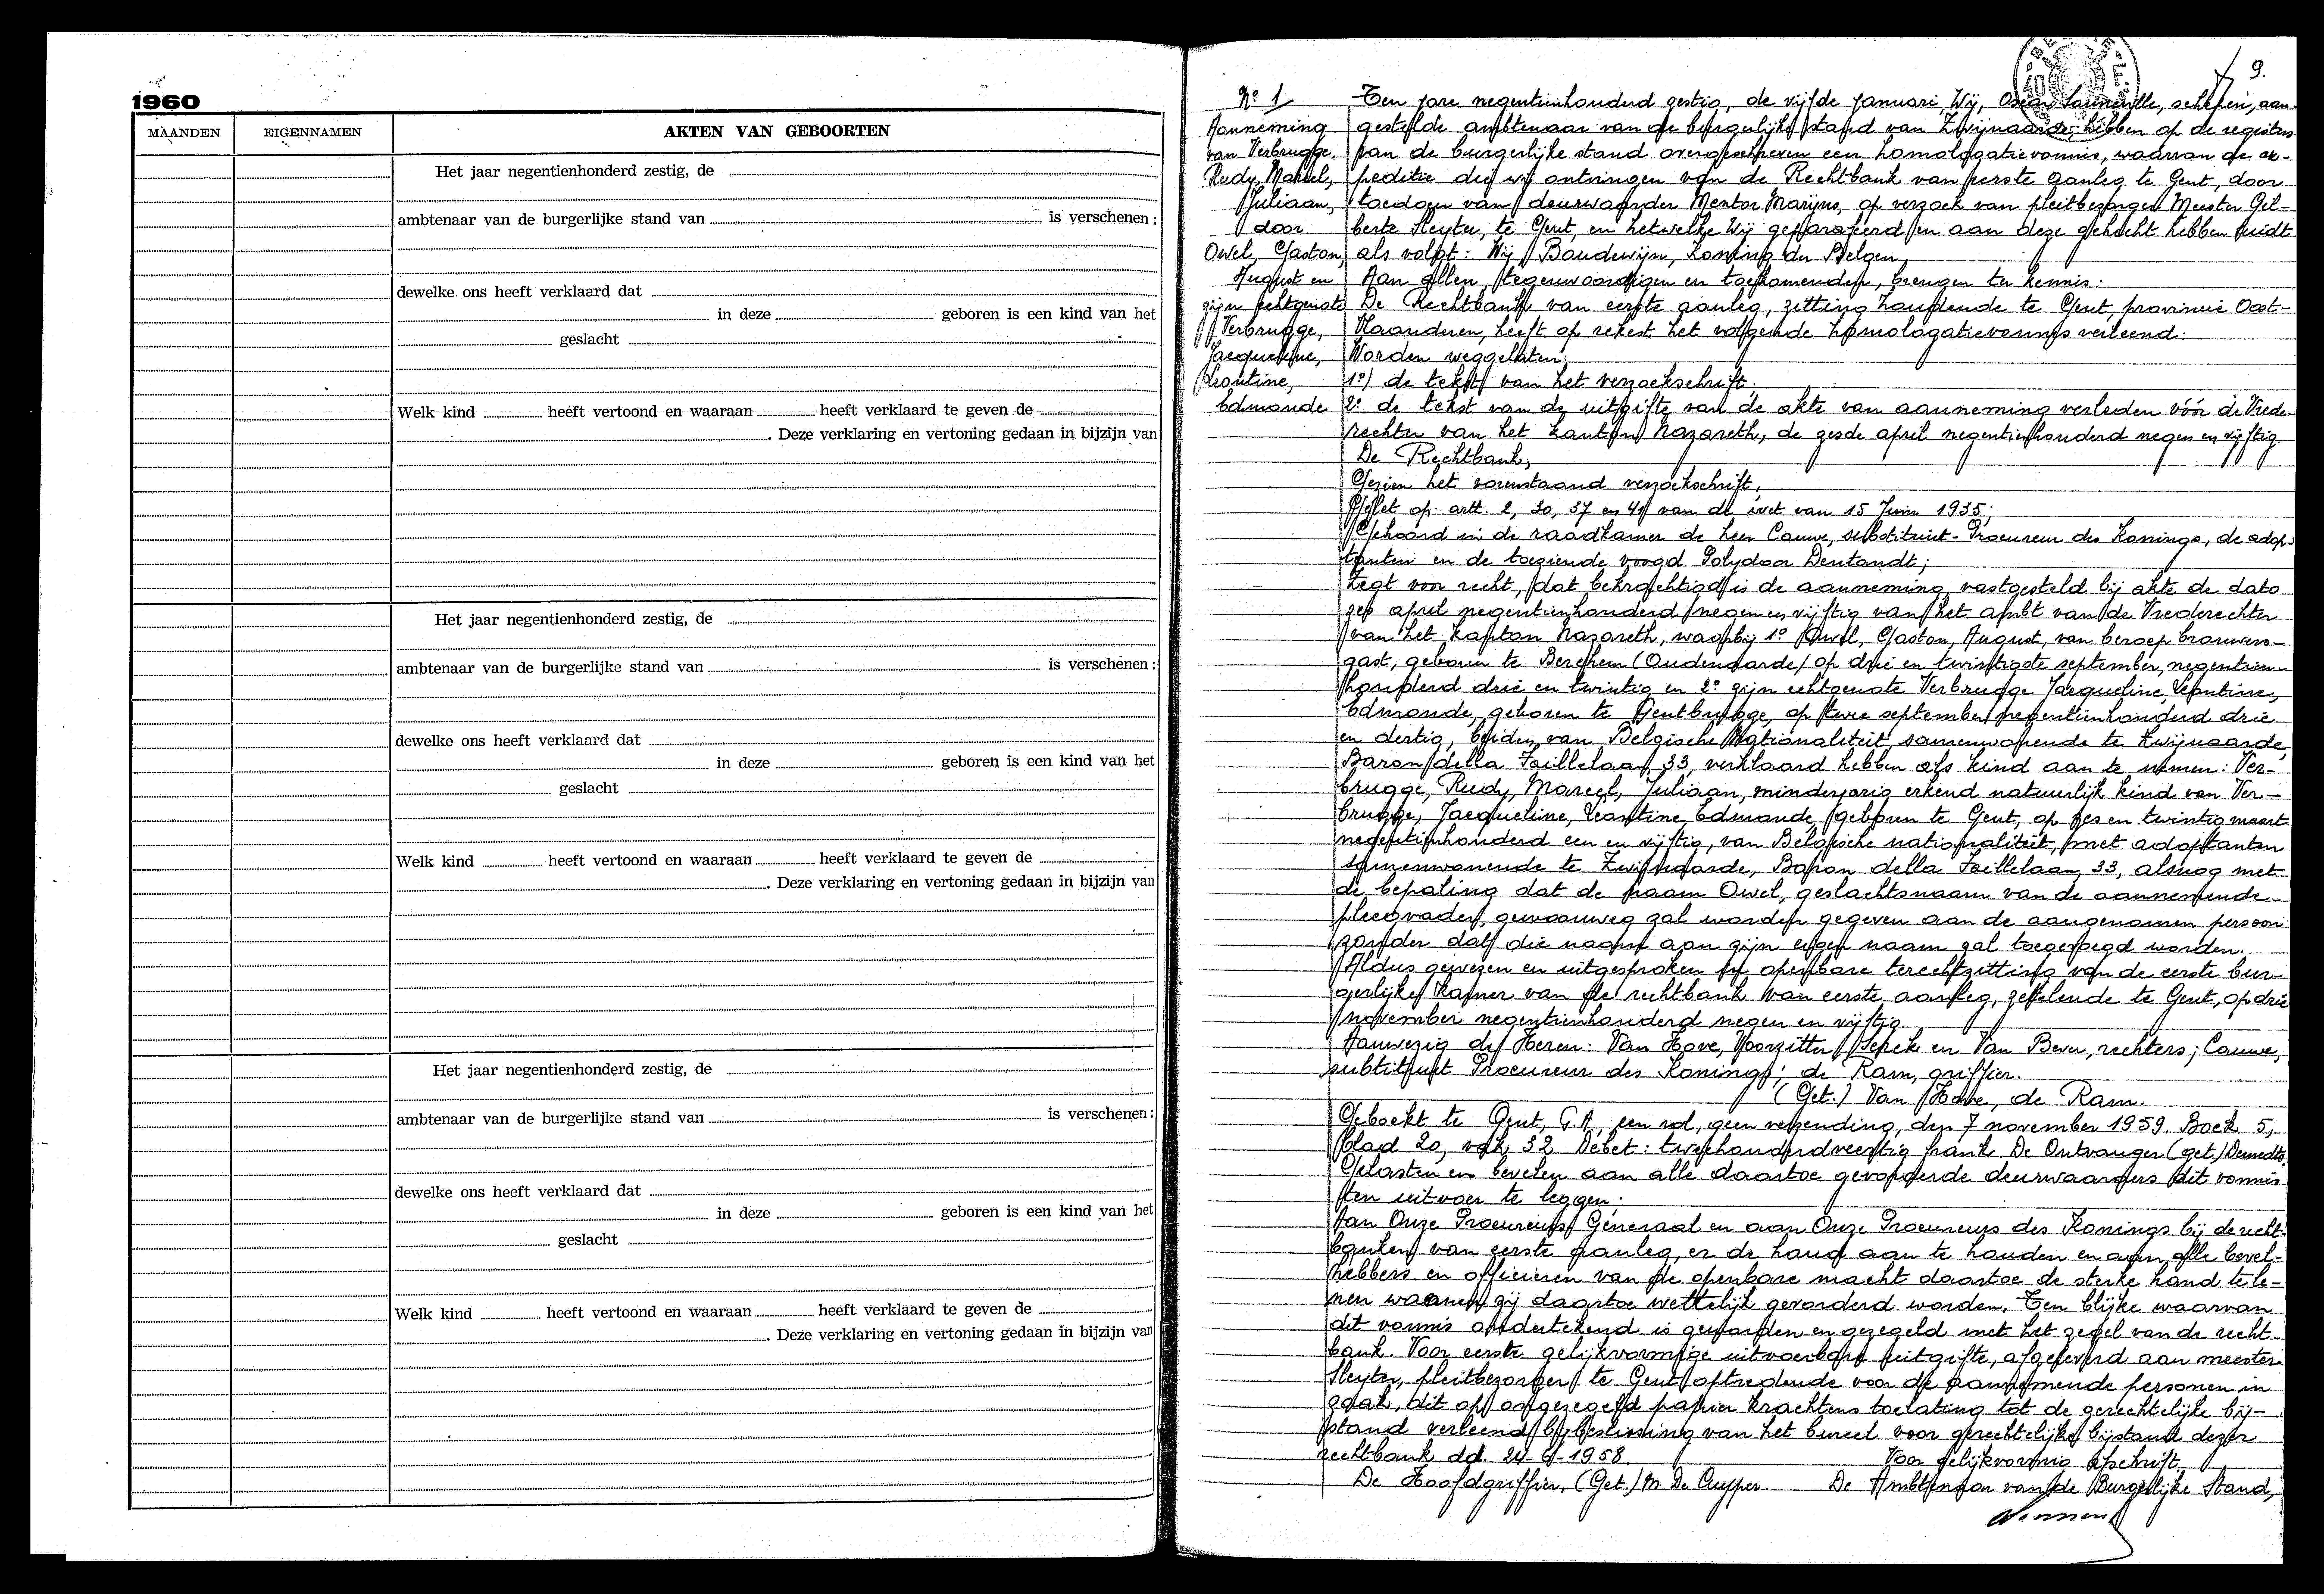 1960
MAANDEN EIGENNAMEN AKTEN VAN GEBOORTEN
Het jaar negentienhonderd zestig, de
ambtenaar van de burgerlijke stand van is verschenen:
dewelke ons heeft verklaard dat
in deze geboren is een kind van het
geslacht
Welk kind heeft vertoond en waaraan heeft verklaard te geven de
. Deze verklaring en vertoning gedaan in bijzijn van
Het jaar negentienhonderd zestig, de
ambtenaar van de burgerlijke stand van is verschenen:
dewelke ons heeft verklaard dat
in deze geboren is een kind van het
geslacht
Welk kind heeft vertoond en waaraan heeft verklaard te geven de
. Deze verklaring en vertoning gedaan in bijzijn van
Het jaar negentienhonderd zestig, de
ambtenaar van de burgerlijke stand van is verschenen:
dewelke ons heeft verklaard dat
in deze geboren is een kind van het
geslacht
Welk kind heeft vertoond en waaraan heeft verklaard te geven de
. Deze verklaring en vertoning gedaan in bijzijn van
9.
No 1
Aanneming
van Verbrugge,
Rudy, Marcel,
Juliaan,
door
Owel, Gaston,
August en
zijn echtgenote
Verbrugge,
Jacqueline,
Leontine,
Edmonde
Ten jare negentienhonderd zestig, de vijfde januari, Wij, Oscar, schepen, aan-
gestelde ambtenaar van de burgerlijke stand van Zwijnaarde, hebben op de registers
van de burgerlijke stand overgeschreven een homologatievonnis, waarvan de ex-
peditie die wij ontvingen van de Rechtbank van eerste aanleg te Gent, door
toedoen van deurwaarder Mentor Marijns, op verzoek van pleitbezorger Meester Gil-
berte Sleyter, te Gent, en hetwelke Wij geparafeerd en aan deze gehecht hebben luidt
als volgt: Wij Boudewijn, Koning der Belgen,
Aan allen, tegenwoordigen en toekomenden, brengen ter kennis:
De Rechtbank van eerste aanleg, zitting houdende te Gent, provincie Oost-
Vlaanderen, heeft op rekest het volgende homologatievonnis verleend:
Worden weggelaten:
1o) de tekst van het verzoekschrift.
2o de tekst van de uitgifte van de akte van aanneming verleden vóór de Vrede-
rechter van het kanton Nazareth, de zesde april negentienhonderd negen en vijftig.
De Rechtbank;
Gezien het vorenstaand verzoekschrift,
Gelet op artt. 2, 30, 37 en 41 van de wet van 15 Juin 1935;
Gehoord in de raadkamer de heer Cauwe, substituut-Procureur des Konings, de adop-
tanten en de toeziende voogd Polydoor Dentandt;
Zegt voor recht, dat bekrachtigd is de aanneming vastgesteld bij akte de dato
zes april negentienhonderd negen en vijftig van het ambt van de Vrederechter
van het kanton Nazareth, waarbij 1o Owel, Gaston, August, van beroep brouwers-
gast, geboren te Berchem (Oudenaarde) op drie en twintigste september, negentien-
honderd drie en twintig en 2o zijn echtgenote Verbrugge Jacqueline, Leontine,
Edmonde, geboren te Gentbrugge, op twee september negentienhonderd drie
en dertig, beiden van Belgische Nationaliteit, samenwonende te Zwijnaarde,
Baron della Faillelaan, 33, verklaard hebben als kind aan te nemen: Ver-
brugge, Rudy, Marcel, Juliaan, minderjarig erkend natuurlijk kind van Ver-
brugge, Jacqueline, Leontine, Edmonde, geboren te Gent, op zes en twintig maart
negentienhonderd een en vijftig, van Belgische nationaliteit, met adoptanten
samenwonende te Zwijnaarde, Baron della Faillelaan, 33, alsnog met
de bepaling dat de naam Owel, geslachtsnaam van de aannemende
pleegvader, gewoonweg zal worden gegeven aan de aangenomen persoon
zonder dat die naam aan zijn eigen naam zal toegevoegd worden.
Aldus gewezen en uitgesproken in openbare terechtzitting van de eerste bur-
gerlijke kamer van de rechtbank van eerste aanleg, zetelende te Gent, op drie
november negentienhonderd negen en vijftig
Aanwezig de Heren: Van Hove, Voorzitter, en Van Bever, rechters; Cauwe,
subtituut Procureur des Konings; de Ram, griffier.
(Get.) Van Hove, de Ram.
Geboekt te Gent, G.A, een rol, geen verzending, den 7 november 1959. Boek 5,
blad 20, vak 32. Debet: tweehonderdveertig frank. De Ontvanger (get.)
Gelasten en bevelen aan alle daartoe gevorderde deurwaarders dit vonnis
ten uitvoer te leggen;
Aan Onze Procureurs Generaal en aan Onze Procureurs des Konings bij de recht-
banken van eerste aanleg, er de hand aan te houden en aan alle bevel-
hebbers en officieren van de openbare macht daartoe de sterke hand te le-
nen waneer zij daartoe wettelijk gevorderd worden. Ten blijke waarvan
dit vonnis ondertekend is geworden en gezegeld met het zegel van de recht-
bank. Voor eerste gelijkvormige uitvoerbare uitgifte, afgeleverd aan meester
Sleyter, pleitbezorger te Gent optredende voor de aannemende personen in
zaak, dit op ongezegeld papier krachtens toelating tot de gerechtelijke bij-
stand verleend bij beslissing van het bureel voor gerechtelijke bijstand dezer
rechtbank dd. 24-9-1958. Voor gelijkvormig afschrift.
De Hoofdgriffier, (Get.) M. De Cuyper De Ambtenaar van de Burgerlijke Stand,